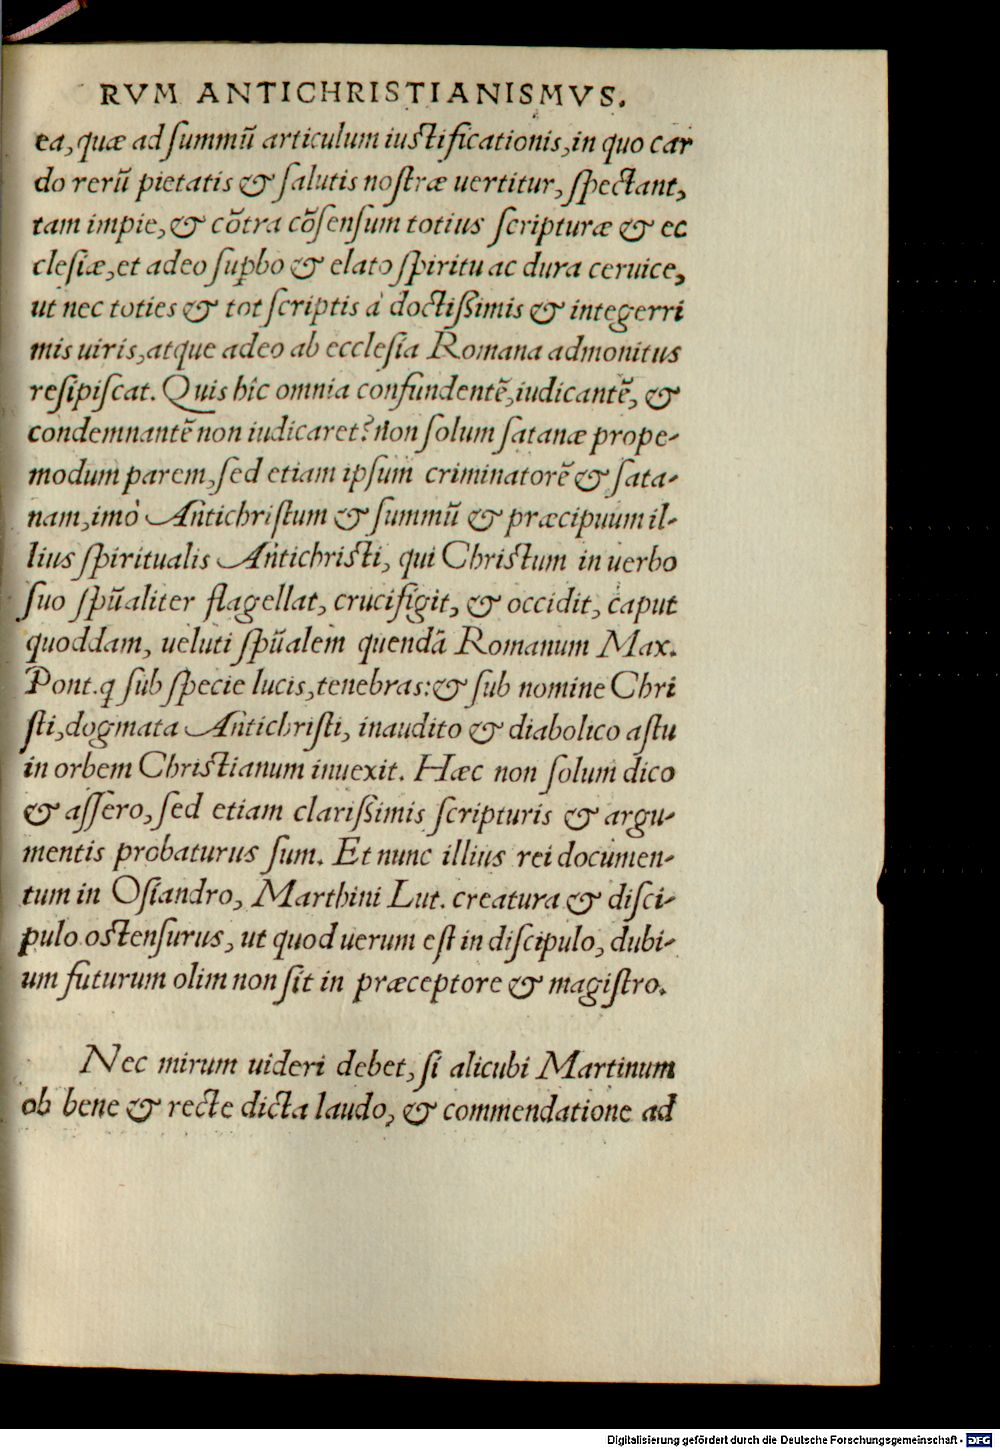 RVM ANTICHRISTIANISMVS.
ea, quæ ad ſummũ articulum iuſtificationis, in quo car
do rerũ pietatis & ſalutis noſtræ uertitur, ſpectant,
tam impie, & cõtra cõſenſum totius ſcripturæ & ec
cleſiæ, et adeo ſuꝑbo & elato ſpiritu ac dura ceruice,
ut nec toties & tot ſcriptis à doctißimis & integerri
mis uiris, atque adeo ab eccleſia Romana admonitus
reſipiſcat. Quis hîc omnia confundentẽ, iudicantẽ, &
condemnantẽ non iudicaret? Non ſolum ſatanæ prope-
modum parem, ſed etiam ipſum criminatorẽ & ſata-
nam, imò Antichriſtum & ſummũ & præcipuum il-
lius ſpiritualis Antichriſti, qui Chriſtum in uerbo
ſuo ſpũaliter flagellat, crucifigit, & occidit, caput
quoddam, ueluti ſpũalem quendã Romanum Max.
Pont. q ſub ſpecie lucis, tenebras: & ſub nomine Chri
ſti, dogmata Antichriſti, inaudito & diabolico aſtu
in orbem Chriſtianum inuexit. Hæc non ſolum dico
& aſſero, ſed etiam clarißimis ſcripturis & argu-
mentis probaturus ſum. Et nunc illius rei documen-
tum in Oſiandro, Marthini Lut. creatura & diſci-
pulo oſtenſurus, ut quod uerum eſt in diſcipulo, dubi-
um futurum olim non ſit in præceptore & magiſtro.
Nec mirum uideri debet, ſi alicubi Martinum
ob bene & recte dicta laudo, & commendatione ad
Digitalisierung gefördert durch die Deutsche Forschungsgemeinschaft - DFG